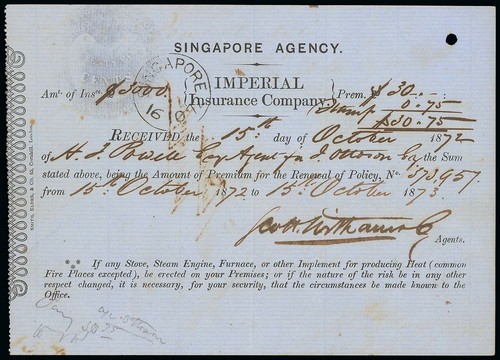 SINGAPORE AGENCY.
SINGAPORE
16
Amt. of Insce. $3000.
IMPERIAL
Insurance Company.
Prem. $30.-
Stamp 0.75
$30.75
RECEIVED the 15th day of October 1872
of H. J. Powell Esq Agent for J. the Sum
stated above, being the Amount of Premium for the Renewal of Policy, No. 373,957
from 15th October 1872 to 15th October 1873.
Scott Witham & Co
Agents.
If any Stove, Steam Engine, Furnace, or other Implement for producing Heat (common
Fire Places excepted), be erected on your Premises; or if the nature of the risk be in any other
respect changed, it is necessary, for your security, that the circumstances be made known to the
Office.
SMITH, ELDER, & CO. 65, Cornhill, London.